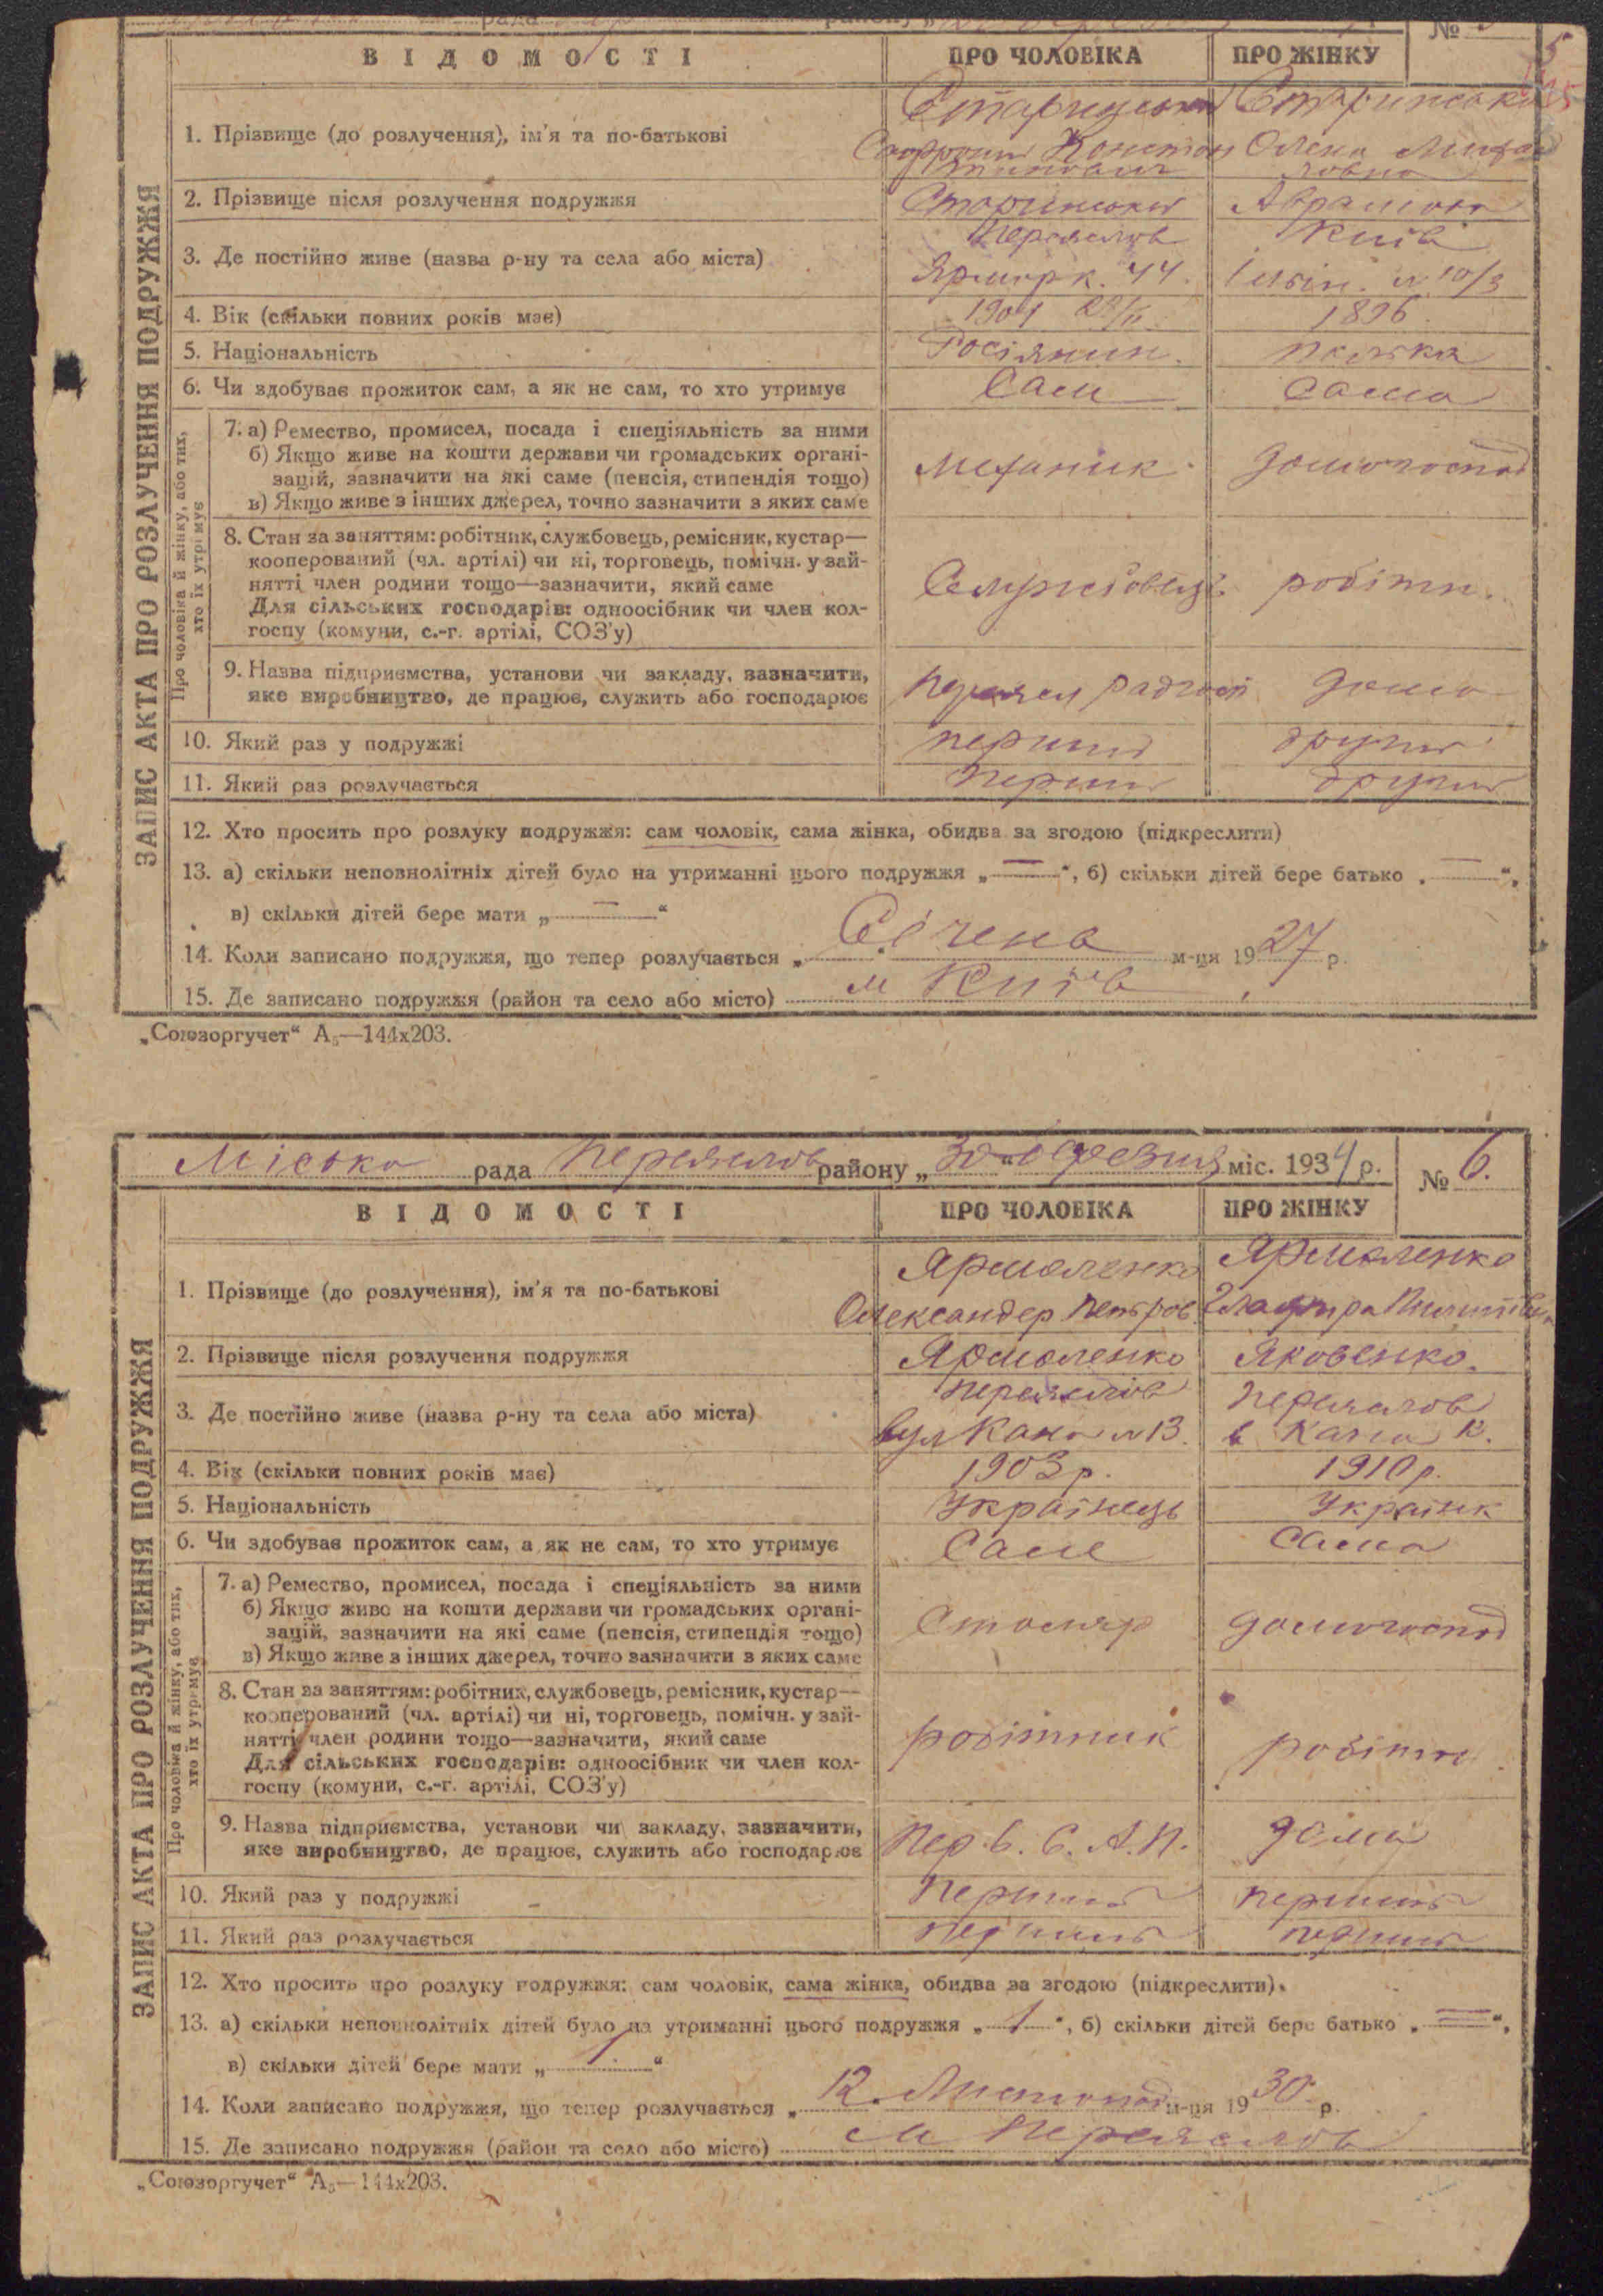 рада
№
5
ВІДОМОСТІ ПРО ЧОЛОВІКА ПРО ЖІНКУ
ЗАПИС АКТА ПРО РОЗЛУЧЕННЯ ПОДРУЖЖЯ
1. Прізвище (до розлучення), ім'я та по-батькові
Олена
2. Прізвище після розлучення подружжя
3. Де постійно живе (назва р-ну та села або міста) Переяслов Київ
Ярмарк. 44. 10/3
4. Вік (скільки повних років має) 1904 1896
5. Національність Росіянин. полька
6. Чи здобуває прожиток сам, а як не сам, то хто утримує Сам Сама
Про чоловіка й жінку, або тих, хто їх утримує
7. а) Ремество, промисел, посада і спеціяльність за ними
б) Якщо живе на кошти держави чи громадських органі-
зацій, зазначити на які саме (пенсія, стипендія тощо) механик домогоспод
в) Якщо живе з інших джерел, точно зазначити з яких саме
8. Стан за заняттям: робітник, службовець, ремісник, кустар—
кооперований (чл. артілі) чи ні, торговець, помічн. у зай-
нятті член родини тощо—зазначити, який саме робітн.
Для сільських господарів: одноосібник чи член кол-
госпу (комуни, с.-г. артілі, СОЗ'у)
9. Назва підприємства, установи чи закладу, зазначити, радгосп дома
яке виробництво, де працює, служить або господарює
10. Який раз у подружжі перший другий
11. Який раз розлучається перший другий
12. Хто просить про розлуку подружжя: сам чоловік, сама жінка, обидва за згодою (підкреслити)
13. а) скільки неповнолітніх дітей було на утриманні цього подружжя „ — “, б) скільки дітей бере батько „ — “,
в) скільки дітей бере мати „ — “
14. Коли записано подружжя, що тепер розлучається „ Січень м-ця 1927 р.
15. Де записано подружжя (район та село або місто) м Київ
„Союзоргучет“ А5—144х203.
Міська рада Переяслов району „30“ березня міс. 1934 р. № 6.
ВІДОМОСТІ ПРО ЧОЛОВІКА ПРО ЖІНКУ
ЗАПИС АКТА ПРО РОЗЛУЧЕННЯ ПОДРУЖЖЯ
Ярмоленко Ярмоленко
1. Прізвище (до розлучення), ім'я та по-батькові
Олександер Петров.
2. Прізвище після розлучення подружжя Ярмоленко Яковенко.
3. Де постійно живе (назва р-ну та села або міста) Переяслов Переяслов
вул Кана № 13.
4. Вік (скільки повних років має) 1903 р. 1910 р.
5. Національність Українець Українк
6. Чи здобуває прожиток сам, а як не сам, то хто утримує Саме Сама
Про чоловіка й жінку, або тих, хто їх утримує
7. а) Ремество, промисел, посада і спеціяльність за ними
б) Якщо живе на кошти держави чи громадських органі-
зацій, зазначити на які саме (пенсія, стипендія тощо) Столяр домогоспод
в) Якщо живе з інших джерел, точно зазначити з яких саме
8. Стан за заняттям: робітник, службовець, ремісник, кустар—
кооперований (чл. артілі) чи ні, торговець, помічн. у зай-
нятті член родини тощо—зазначити, який саме робітник робітн
Для сільських господарів: одноосібник чи член кол-
госпу (комуни, с.-г. артілі, СОЗ'у)
9. Назва підприємства, установи чи закладу, зазначити, Пер. дома
яке виробництво, де працює, служить або господарює
10. Який раз у подружжі перший перший
11. Який раз розлучається перший перший
12. Хто просить про розлуку подружжя: сам чоловік, сама жінка, обидва за згодою (підкреслити).
13. а) скільки неповнолітніх дітей було на утриманні цього подружжя „ 1 “, б) скільки дітей бере батько „ = “,
в) скільки дітей бере мати „ 1 “
14. Коли записано подружжя, що тепер розлучається „ 12. Листопад м-ця 1930 р.
15. Де записано подружжя (район та село або місто) м Переяслов
„Союзоргучет“ А5—144х203.